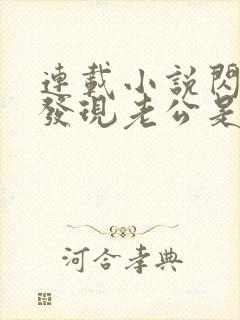 連載小說閃
發現老公是
河合孝典